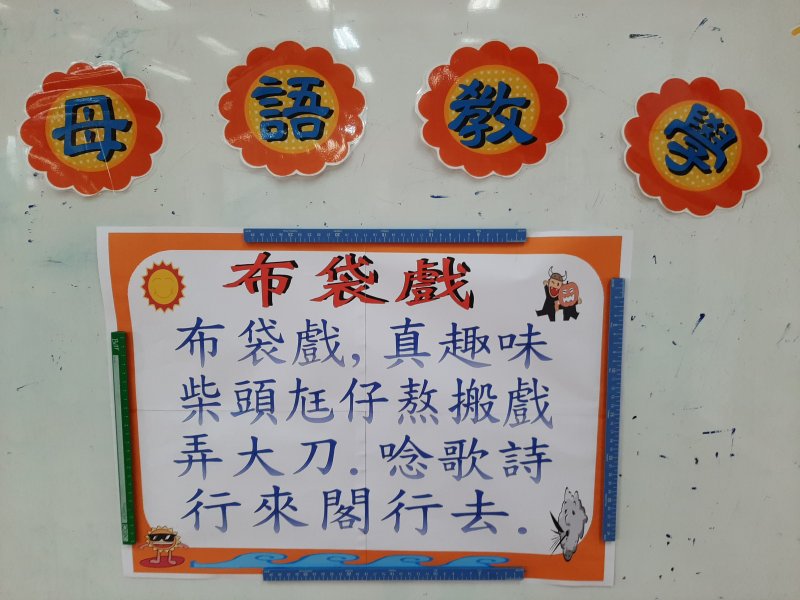 母語教學
布袋戲
布袋戲,真趣味
柴頭尪仔熬搬戲
弄大刀.唸歌詩
行來閣行去.